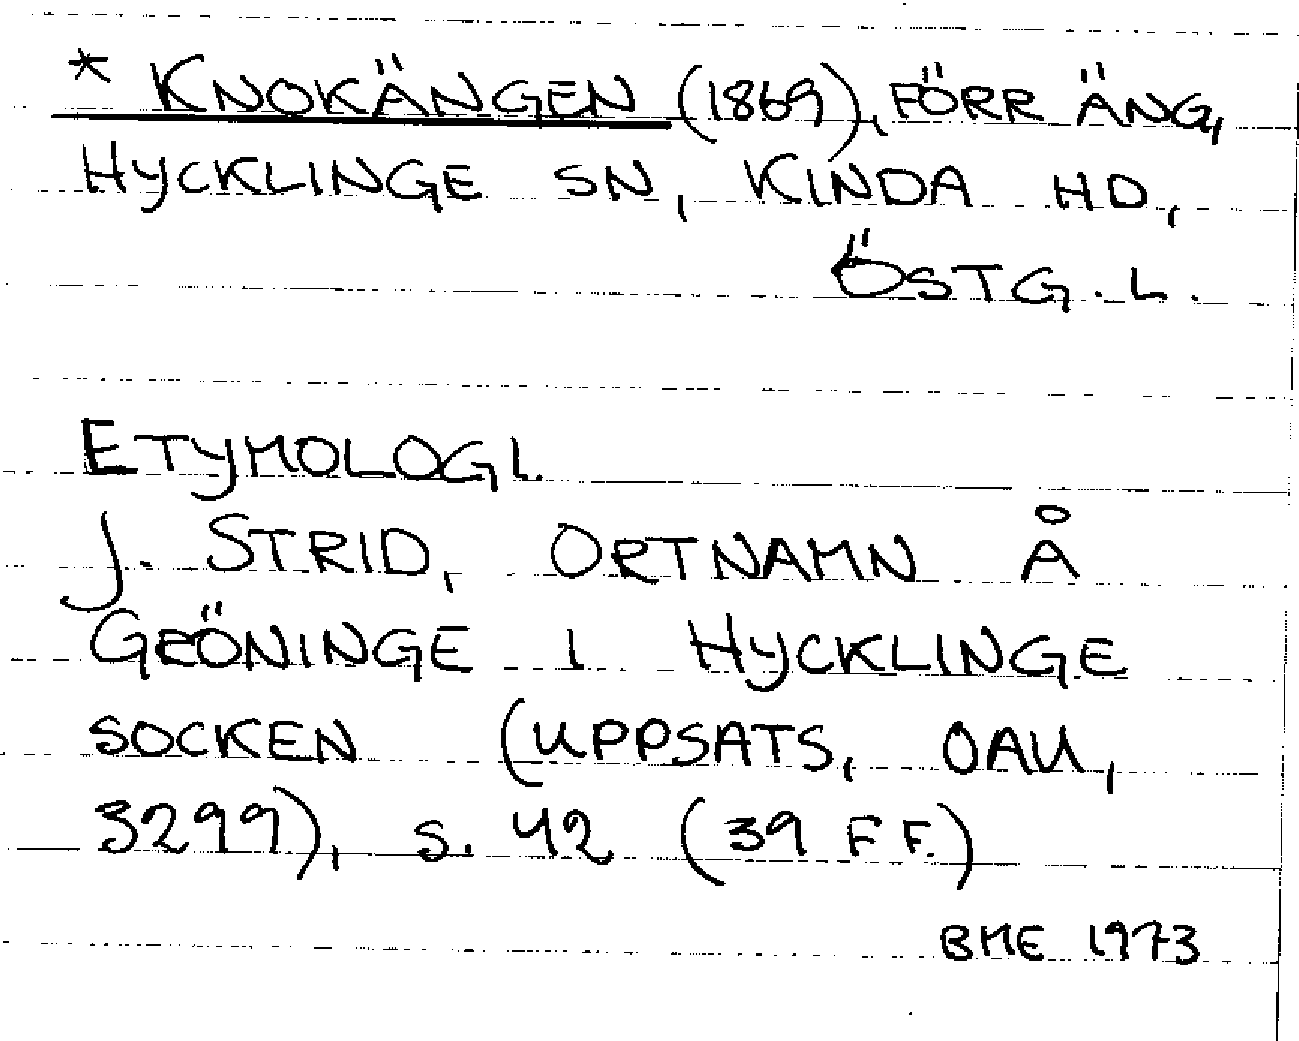 * KNOKÄNGEN (1869), FÖRR ÄNG,
HYCKLINGE SN, KINDA HD,
ÖSTG. L.
ETYMOLOGI.
J. STRID, ORTNAMN Å
GRÖNINGE I HYCKLINGE
SOCKEN (UPPSATS, OAU,
3299), S. 42 (39 FF.)
BME 1973